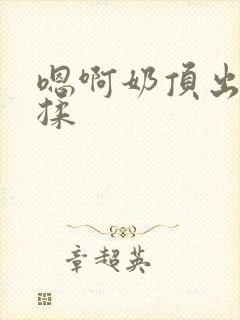 嗯啊奶頂出
揉
章超英